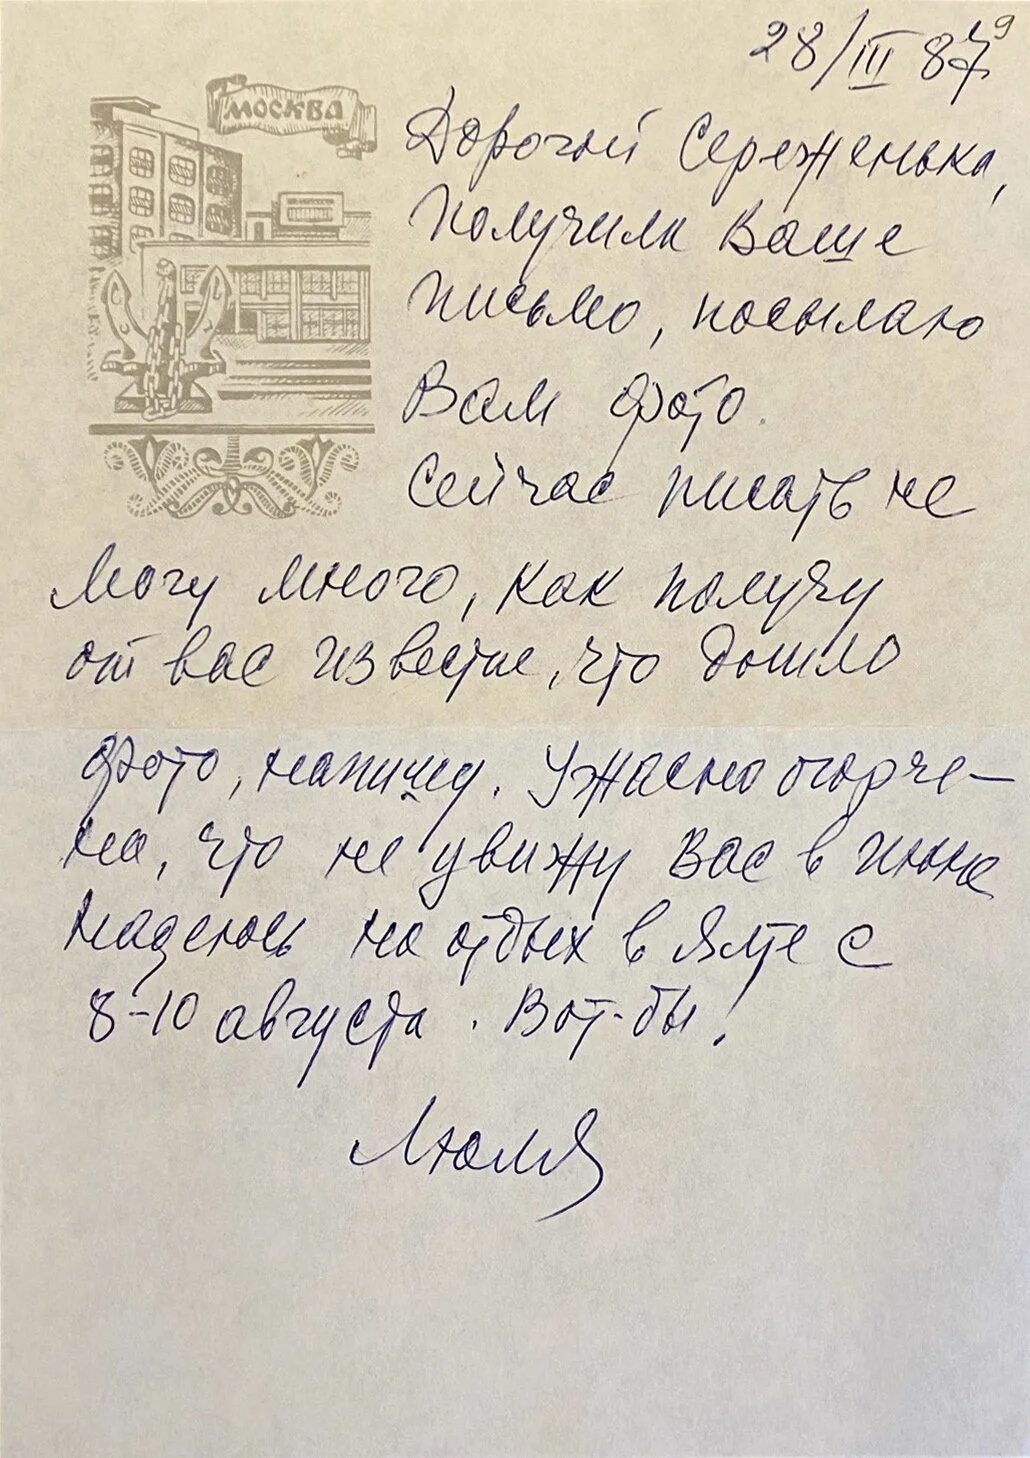 28/III 87 г
МОСКВА
Дорогой Сереженька,
Получила Ваше
письмо, посылаю
Вам фото.
Сейчас писать не
могу много, как получу
от вас известие, что дошло
фото, напишу. Ужасно огорче-
на, что не увижу Вас в июне
Надеюсь на отдых в Ялте с
8-10 августа. Вот-бы!
Люля